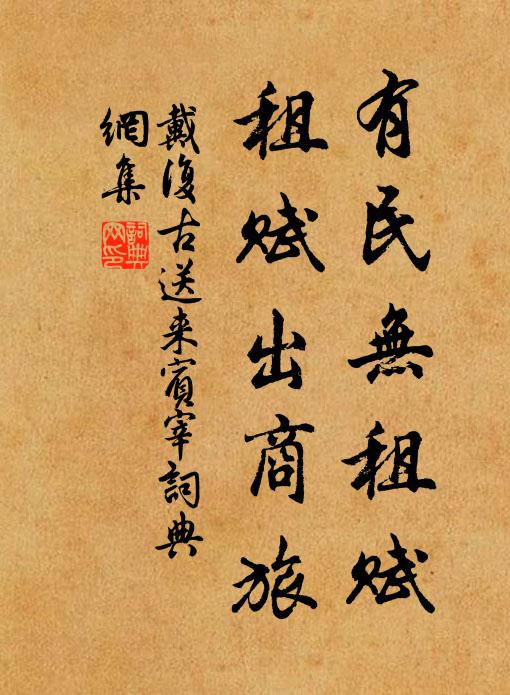 有民無租賦
租賦出商旅
戴復古送来賓宰詞典
網集
詞典網印